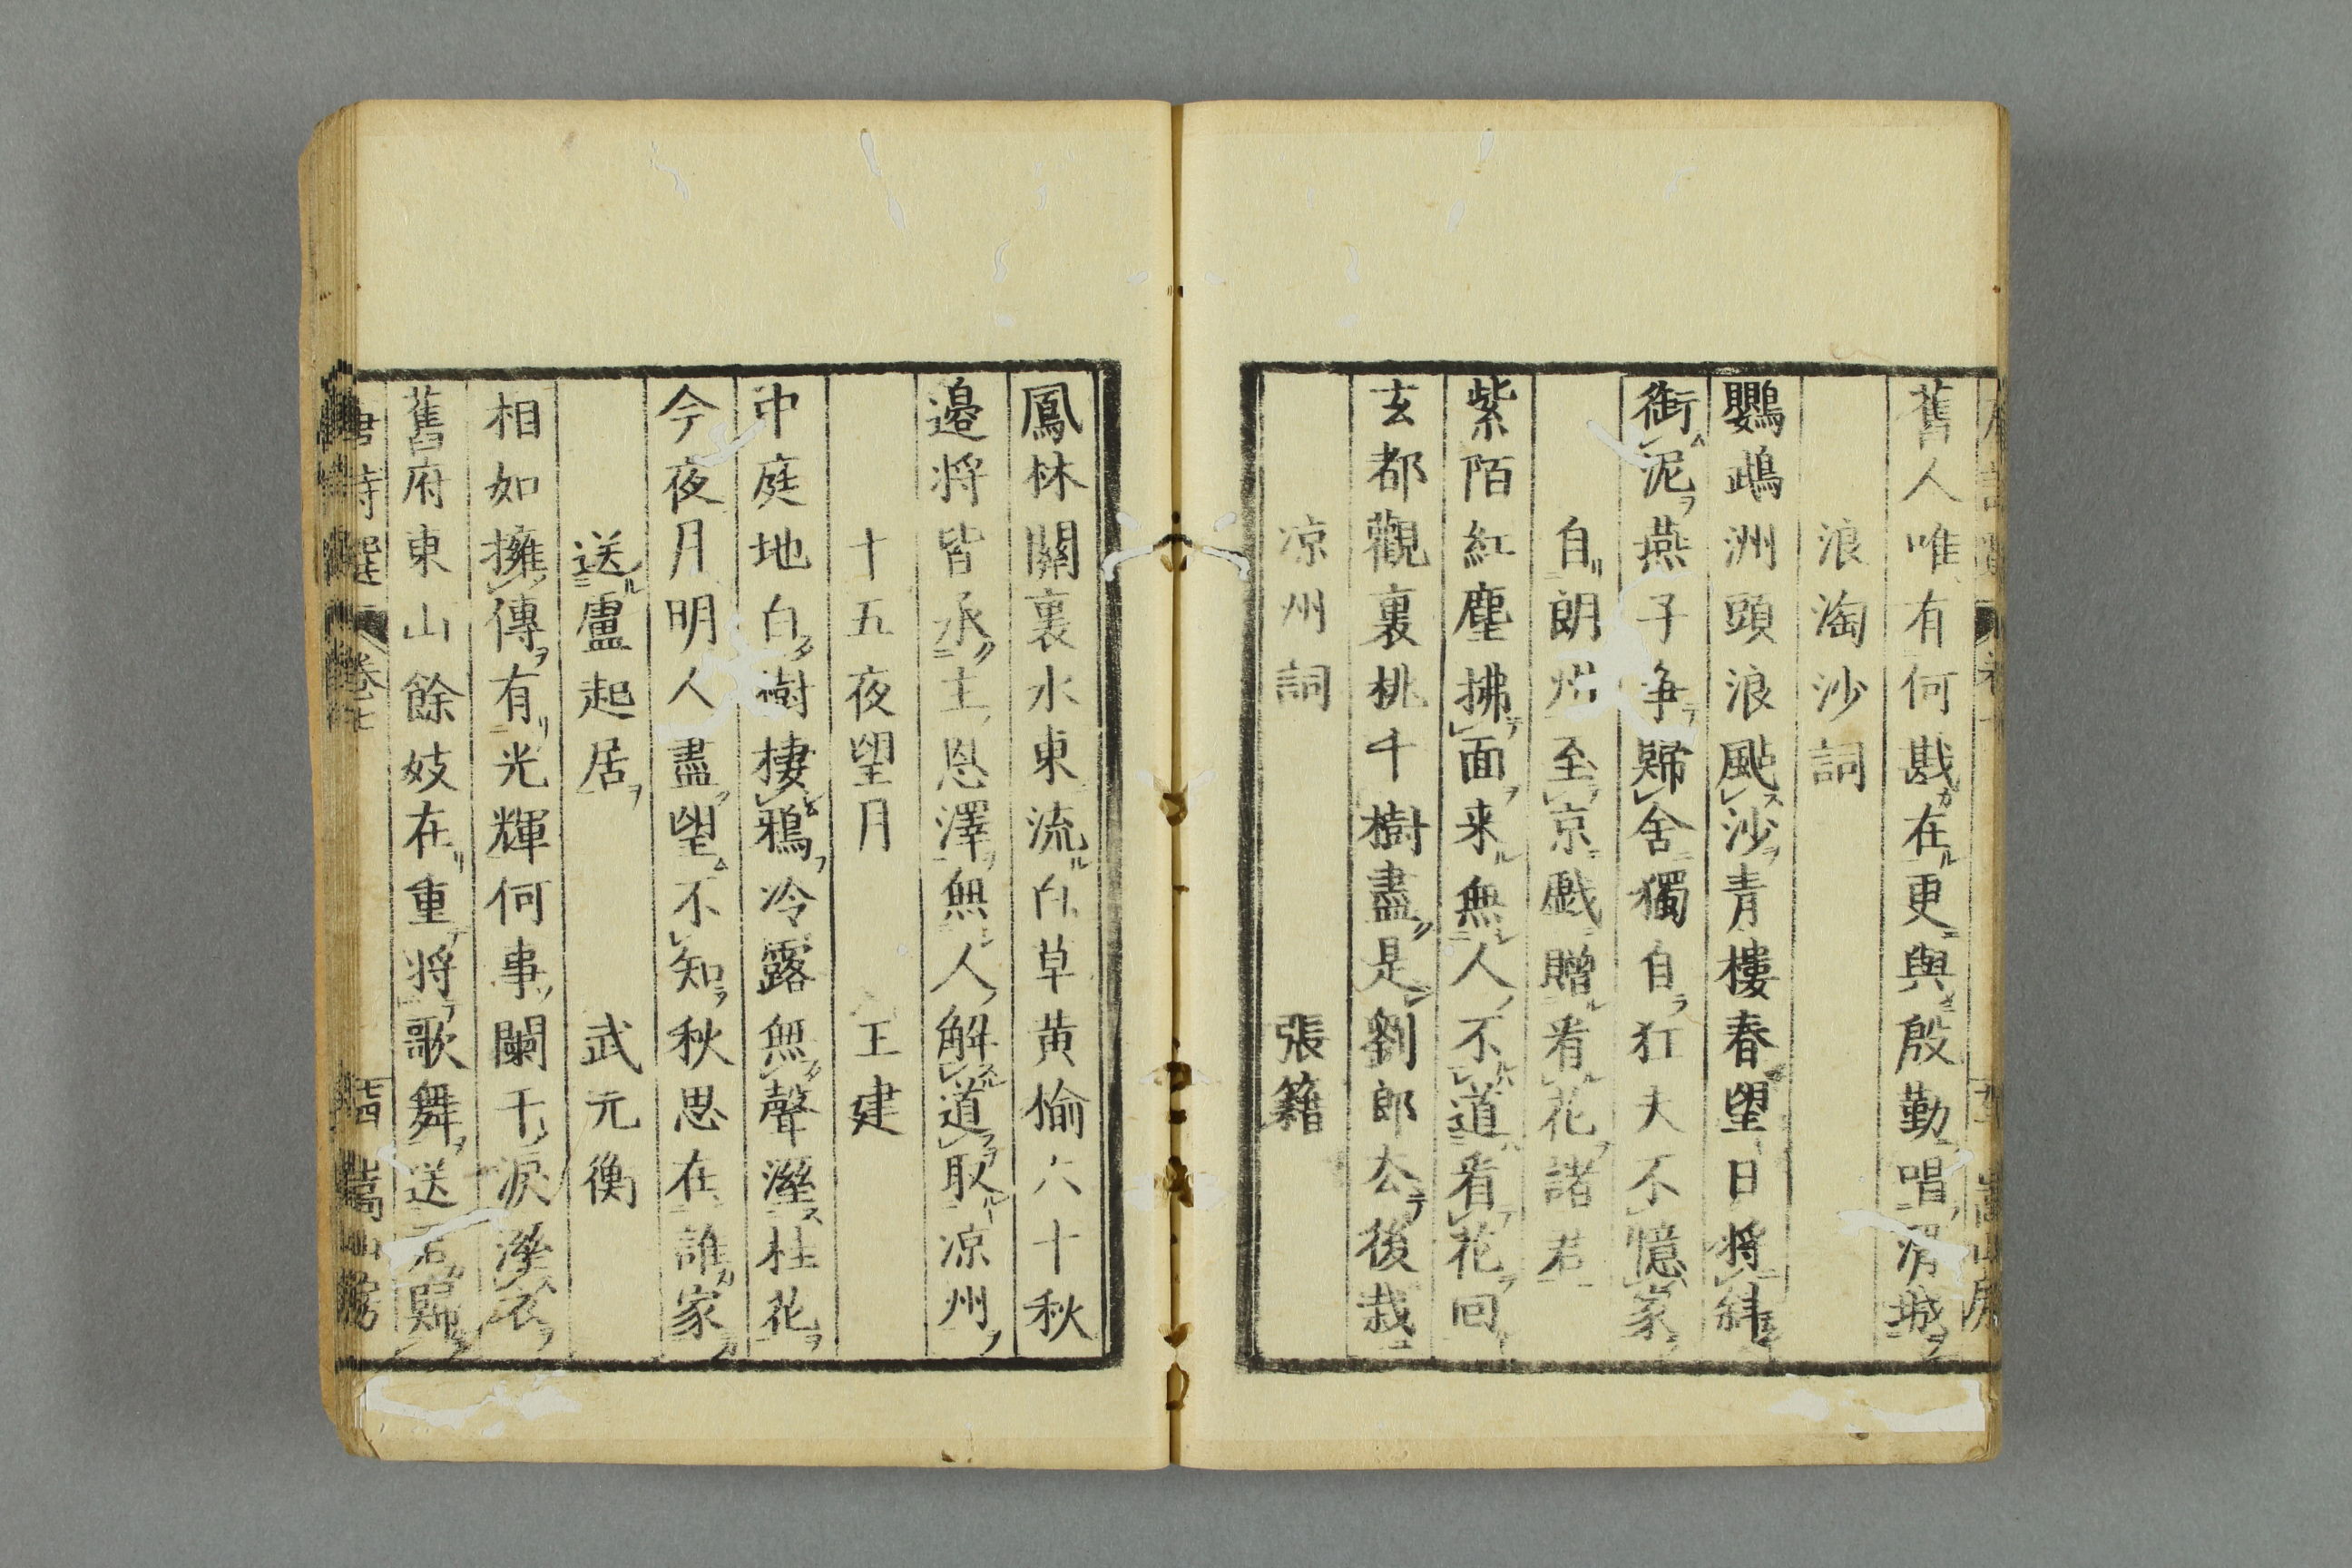 舊人唯有何戡在更與殷勤唱渭城
浪淘沙詞
鸚鵡洲頭浪颭沙青樓春望日將斜
銜泥燕子爭歸舍獨自狂夫不憶家
自朗州至京戲贈看花諸君
紫陌紅塵拂面來無人不道看花回
玄都觀裏桃千樹盡是劉郎去後栽
涼州詞 張籍
鳳林關裏水東流白草黃榆六十秋
邊將皆承主恩澤無人解道取涼州
十五夜望月 王建
中庭地白樹棲鴉冷露無聲溼桂花
今夜月明人盡望不知秋思在誰家
送盧起居 武元衡
相如擁傳有光輝何事闌干淚溼衣
舊府東山餘妓在重將歌舞送君歸
唐詩選 卷七 嵩山房